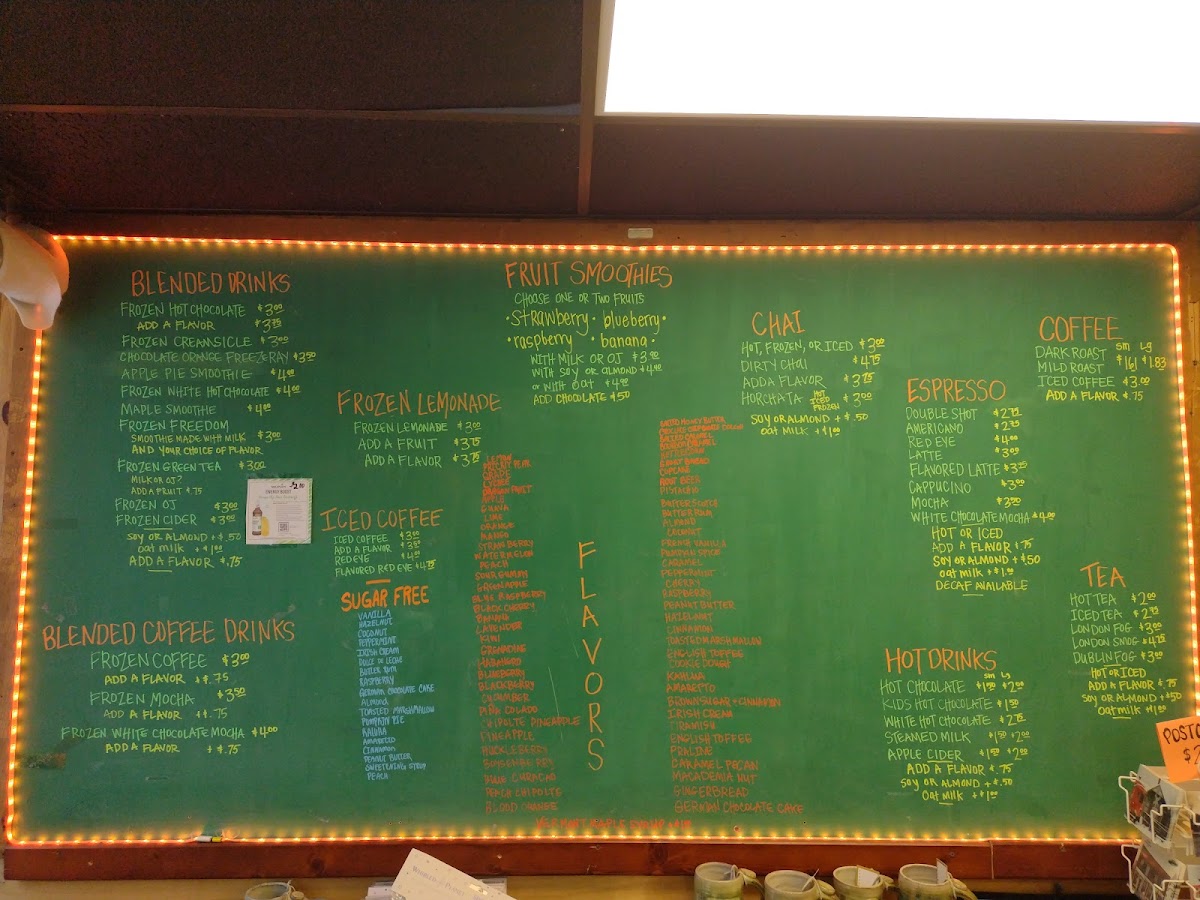 BLENDED DRINKS
FROZEN HOT CHOCOLATE $3.00
ADD A FLAVOR $3.75
FROZEN CREAMSICLE $3.00
CHOCOLATE ORANGE FREEZERAY $3.50
APPLE PIE SMOOTHIE $4.00
FROZEN WHITE HOT CHOCOLATE $4.00
MAPLE SMOOTHIE $4.00
FROZEN FREEDOM
SMOOTHIE MADE WITH MILK $3.00
AND YOUR CHOICE OF FLAVOR
FROZEN GREEN TEA $3.00
MILK OR OJ?
ADD A FRUIT $.75
FROZEN OJ $3.00
FROZEN CIDER $3.00
SOY OR ALMOND + $.50
oat milk + $1.00
ADD A FLAVOR $.75
BLENDED COFFEE DRINKS
FROZEN COFFEE $3.00
ADD A FLAVOR + $.75
FROZEN MOCHA $3.50
ADD A FLAVOR + $.75
FROZEN WHITE CHOCOLATE MOCHA $4.00
ADD A FLAVOR + $.75
FROZEN LEMONADE
FROZEN LEMONADE $3.00
ADD A FRUIT $3.75
ADD A FLAVOR $3.75
ICED COFFEE
ICED COFFEE $3.00
ADD A FLAVOR
RED EYE
FLAVORED RED EYE $4.75
SUGAR FREE
VANILLA
HAZELNUT
COCONUT
PEPPERMINT
IRISH CREAM
DULCE DE LECHE
BUTTER RUM
RASPBERRY
GERMAN CHOCOLATE CAKE
Almond
TOASTED MARSHMALLOW
PUMPKIN PIE
KALUHA
AMARETTO
CINNAMON
PEANUT BUTTER
SWEETENING SYRUP
PEACH
FRUIT SMOOTHIES
CHOOSE ONE OR TWO FRUITS
• Strawberry • blueberry •
• raspberry • banana •
WITH MILK OR OJ $3.90
WITH SOY OR ALMOND $4.40
or WITH oat $4.90
ADD CHOCOLATE $.50
FLAVORS
PRICKLY PEAR
LYCHEE
DRAGON FRUIT
APPLE
GUAVA
LIME
ORANGE
MANGO
STRAWBERRY
WATERMELON
PEACH
SOUR GUMMY
GREEN APPLE
BLUE RASPBERRY
BLACK CHERRY
BANANA
LAVENDER
KIWI
GRENADINE
HABANERO
BLUEBERRY
BLACKBERRY
CUCUMBER
PIÑA COLADO
CHIPOLTE PINEAPPLE
PINEAPPLE
HUCKLEBERRY
BOYSENBERRY
BLUE CURACAO
PEACH CHIPOLTE
BLOOD ORANGE
SALTED CARAMEL
CUPCAKE
ROOT BEER
PISTACHIO
BUTTERSCOTCH
BUTTER RUM
ALMOND
COCONUT
FRENCH VANILLA
PUMPKIN SPICE
CARAMEL
PEPPERMINT
CHERRY
RASPBERRY
PEANUT BUTTER
HAZELNUT
CINNAMON
TOASTED MARSHMALLOW
ENGLISH TOFFEE
COOKIE DOUGH
KAHLUA
AMARETTO
BROWN SUGAR + CINNAMON
IRISH CREAM
TIRAMISU
ENGLISH TOFFEE
PRALINE
CARAMEL PECAN
MACADEMIA NUT
GINGERBREAD
GERMAN CHOCOLATE CAKE
VERMONT MAPLE SYRUP
CHAI
HOT, FROZEN, OR ICED $3.00
DIRTY CHAI $4.75
ADD A FLAVOR $3.75
HORCHATA HOT ICED FROZEN $3.00
SOY OR ALMOND + $.50
oat MILK + $1.00
ESPRESSO
DOUBLE SHOT $2.75
AMERICANO $2.75
RED EYE $4.00
LATTE $3.00
FLAVORED LATTE $3.75
CAPPUCINO $3.00
MOCHA $3.50
WHITE CHOCOLATE MOCHA $4.00
HOT OR ICED
ADD A FLAVOR $.75
SOY OR ALMOND + $.50
oat milk + $1.00
DECAF AVAILABLE
HOT DRINKS
Sm Lg
HOT CHOCOLATE $1.50 $2.00
KIDS HOT CHOCOLATE $1.50
WHITE HOT CHOCOLATE $2.75
STEAMED MILK $1.50 $2.00
APPLE CIDER $1.50 $2.00
ADD A FLAVOR $.75
SOY OR ALMOND + $.50
oat MILK + $1.00
COFFEE
Sm Lg
DARK ROAST
MILD ROAST $1.61 $1.83
ICED COFFEE $3.00
ADD A FLAVOR $.75
TEA
HOT TEA $2.00
ICED TEA $2.75
LONDON FOG $3.00
LONDON SMOG $4.75
DUBLIN FOG $3.00
HOT OR ICED
ADD A FLAVOR $.75
SOY OR ALMOND + $.50
oat milk + $1.00